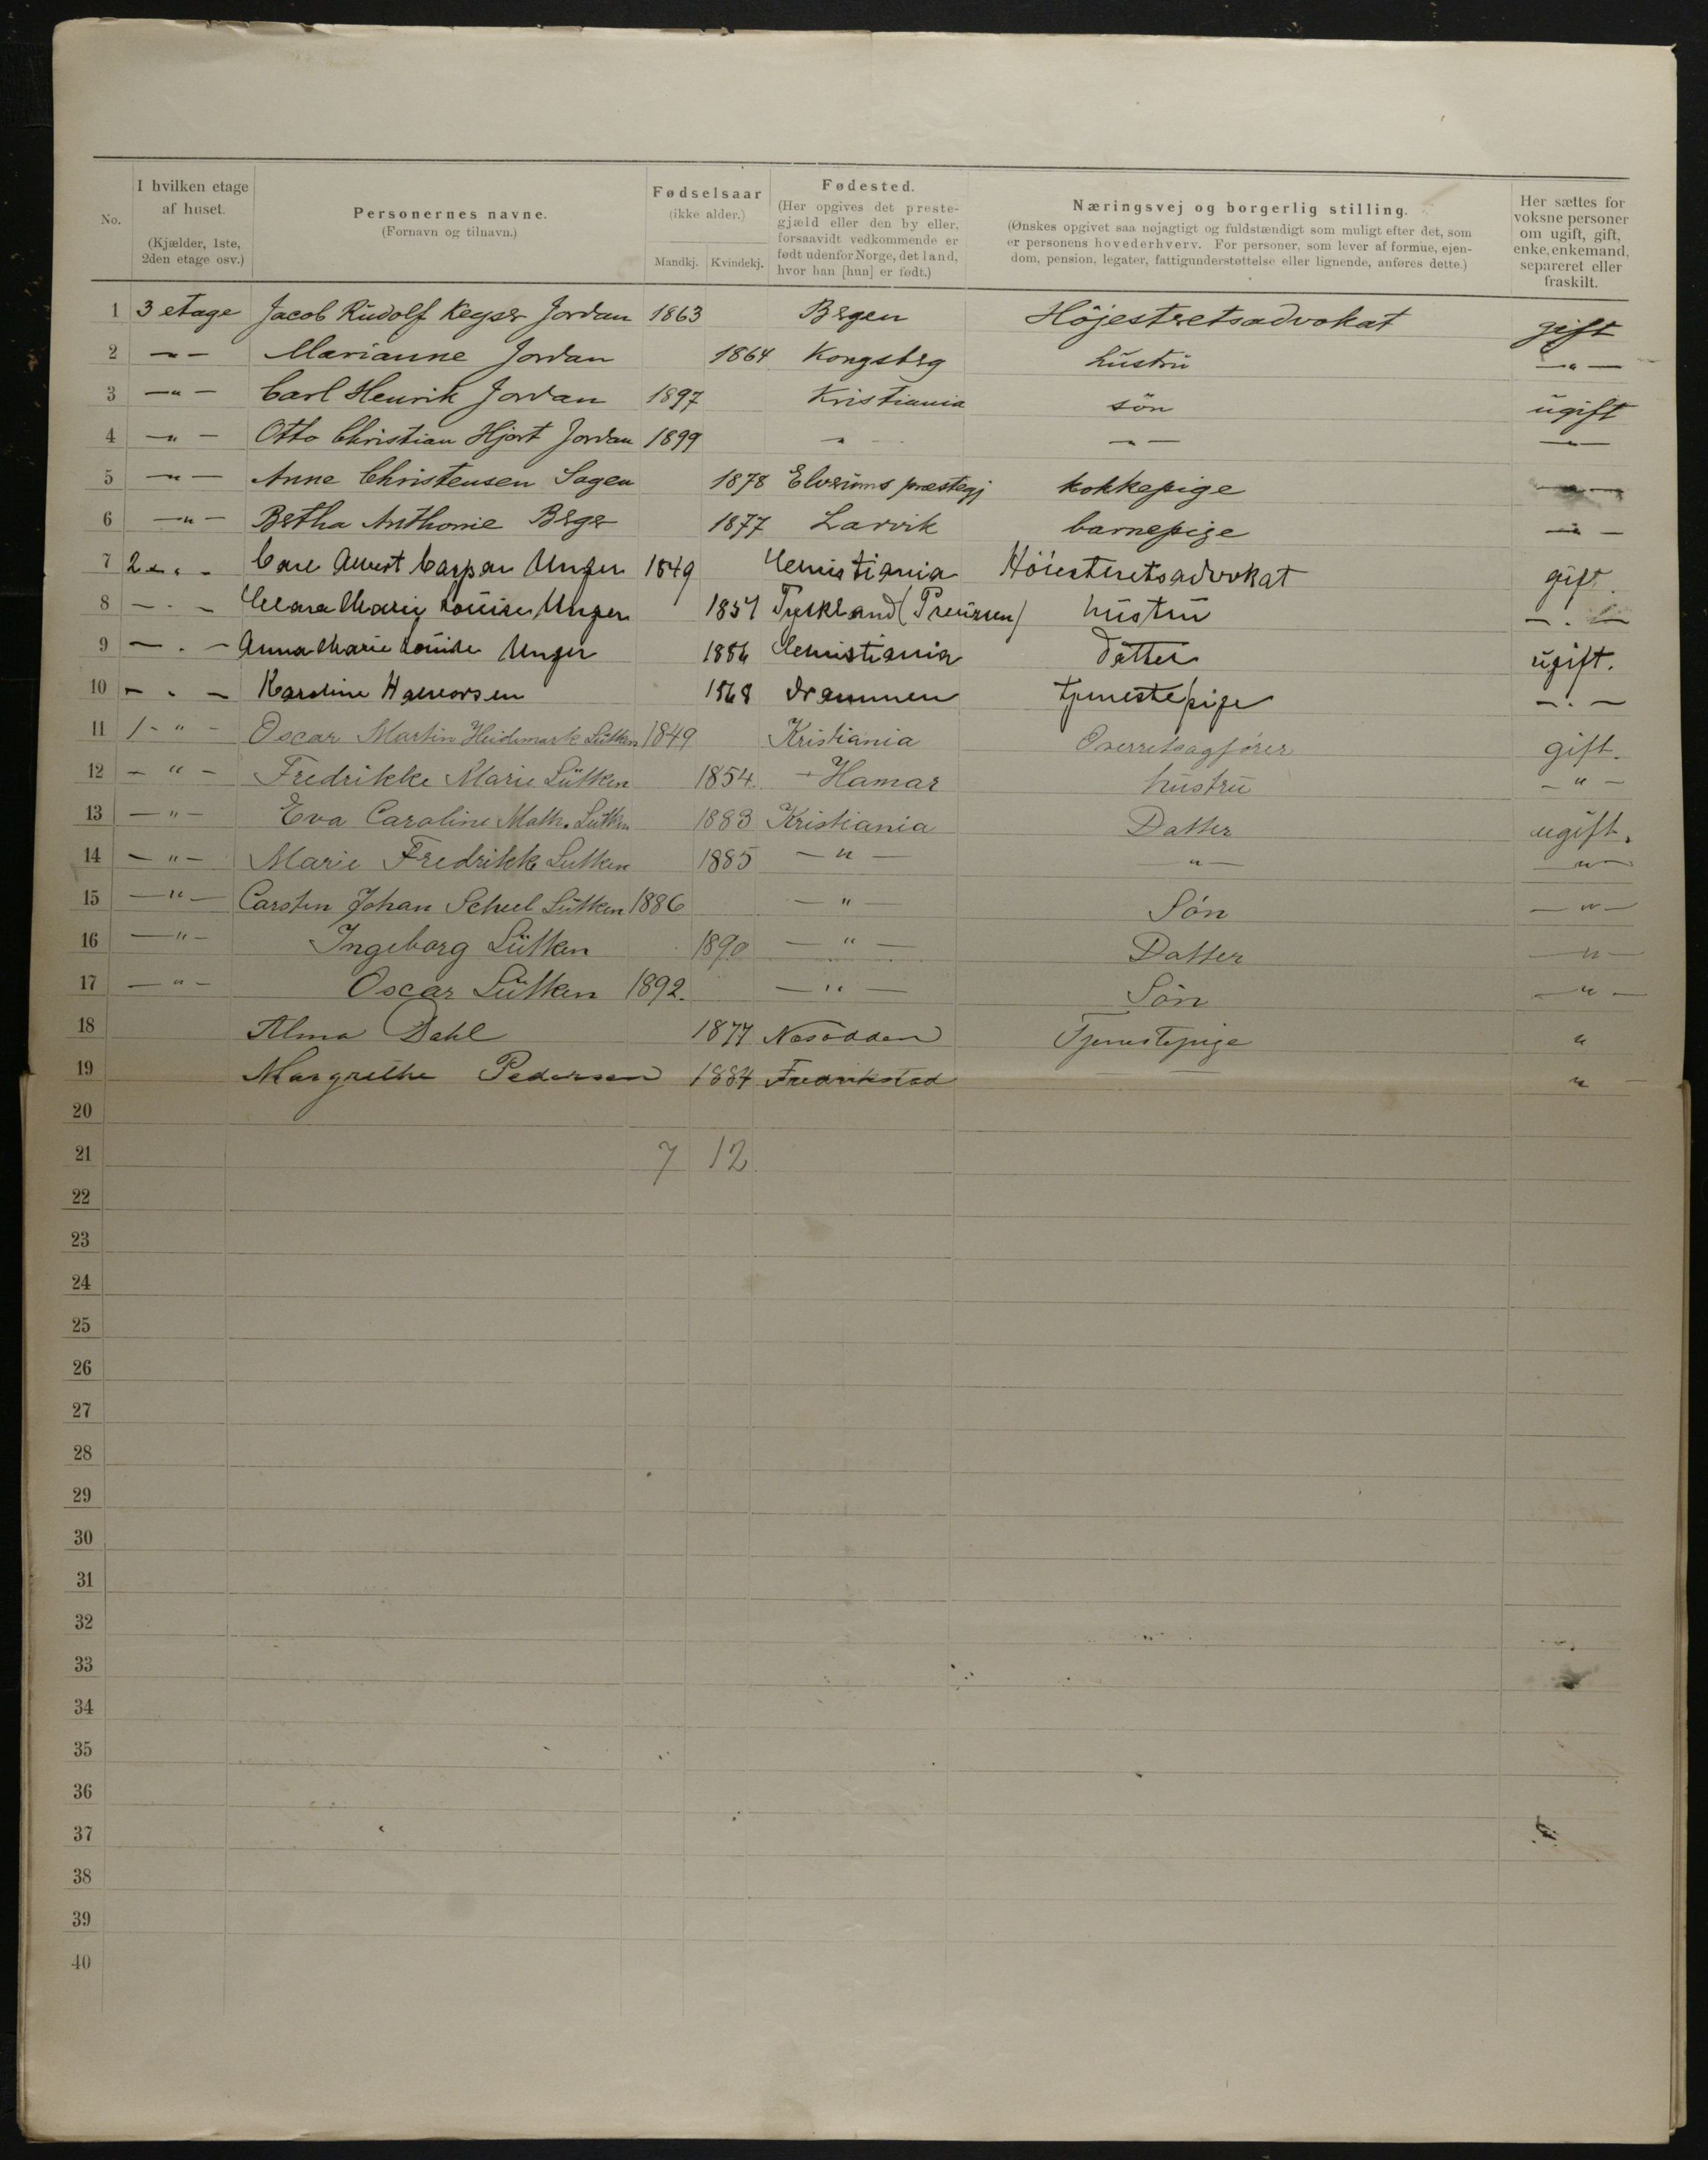 No.
I hvilken etage af huset. (Kjælder, 1ste, 2den etage osv.)
Personernes navne. (Fornavn og tilnavn.)
Fødselsaar (ikke alder.) Mandkj. Kvindekj.
Fødested. (Her opgives det prestegjæld eller den by eller, forsaavidt vedkommende er født udenfor Norge, det land, hvor han [hun] er født.)
Næringsvej og borgerlig stilling. (Ønskes opgivet saa nøjagtigt og fuldstændigt som muligt efter det, som er personens hovederhverv. For personer, som lever af formue, ejendom, pension, legater, fattigunderstøttelse eller lignende, anføres dette.)
Her sættes for voksne personer om ugift, gift, enke, enkemand, separeret eller fraskilt.
1 3 etage Jacob Rudolf Keyser Jordan 1863 Bergen Höjesteretsadvokat gift
2 —"— Marianne Jordan 1864 Kongsberg hustru —"—
3 —"— Carl Henrik Jordan 1897 Kristiania sön ugift
4 —"— Otto Christian Hjort Jordan 1899 " —"— —"—
5 —"— Anne Christensen Sagen 1878 Elverums præstegj kokkepige —"—
6 —"— Bertha Anthonie Berger 1877 Larvik barnepige —"—
7 2 —"— Carl Albert Caspar Unger 1849 Christiania Höiesteretsadvokat gift.
8 —"— Clara Marie Louise Unger 1857 Tyskland (Preussen) hustru —"—
9 —"— Anna Marie Louise Unger 1886 Christiania datter ugift.
10 —"— Karoline Halvorsen 1868 Drammen tjenestepige —"—
11 1 —"— Oscar Martin Heidemark Lütken 1849 Kristiania Overretsagfører gift.
12 —"— Fredrikke Marie Lütken 1854 Hamar hustru —"—
13 —"— Eva Caroline Math. Lütken 1883 Kristiania Datter ugift.
14 —"— Marie Fredrikke Lütken 1885 —"— —"— —"—
15 —"— Carsten Johan Scheel Lütken 1886 —"— Søn —"—
16 —"— Ingeborg Lütken 1890 —"— Datter —"—
17 —"— Oscar Lütken 1892. —"— Søn —"—
18 Alma Dahl 1877 Nesodden Tjenestepige "
19 Margrethe Pedersen 1884 Fredrikstad — — "
20
21 7 12
22
23
24
25
26
27
28
29
30
31
32
33
34
35
36
37
38
39
40